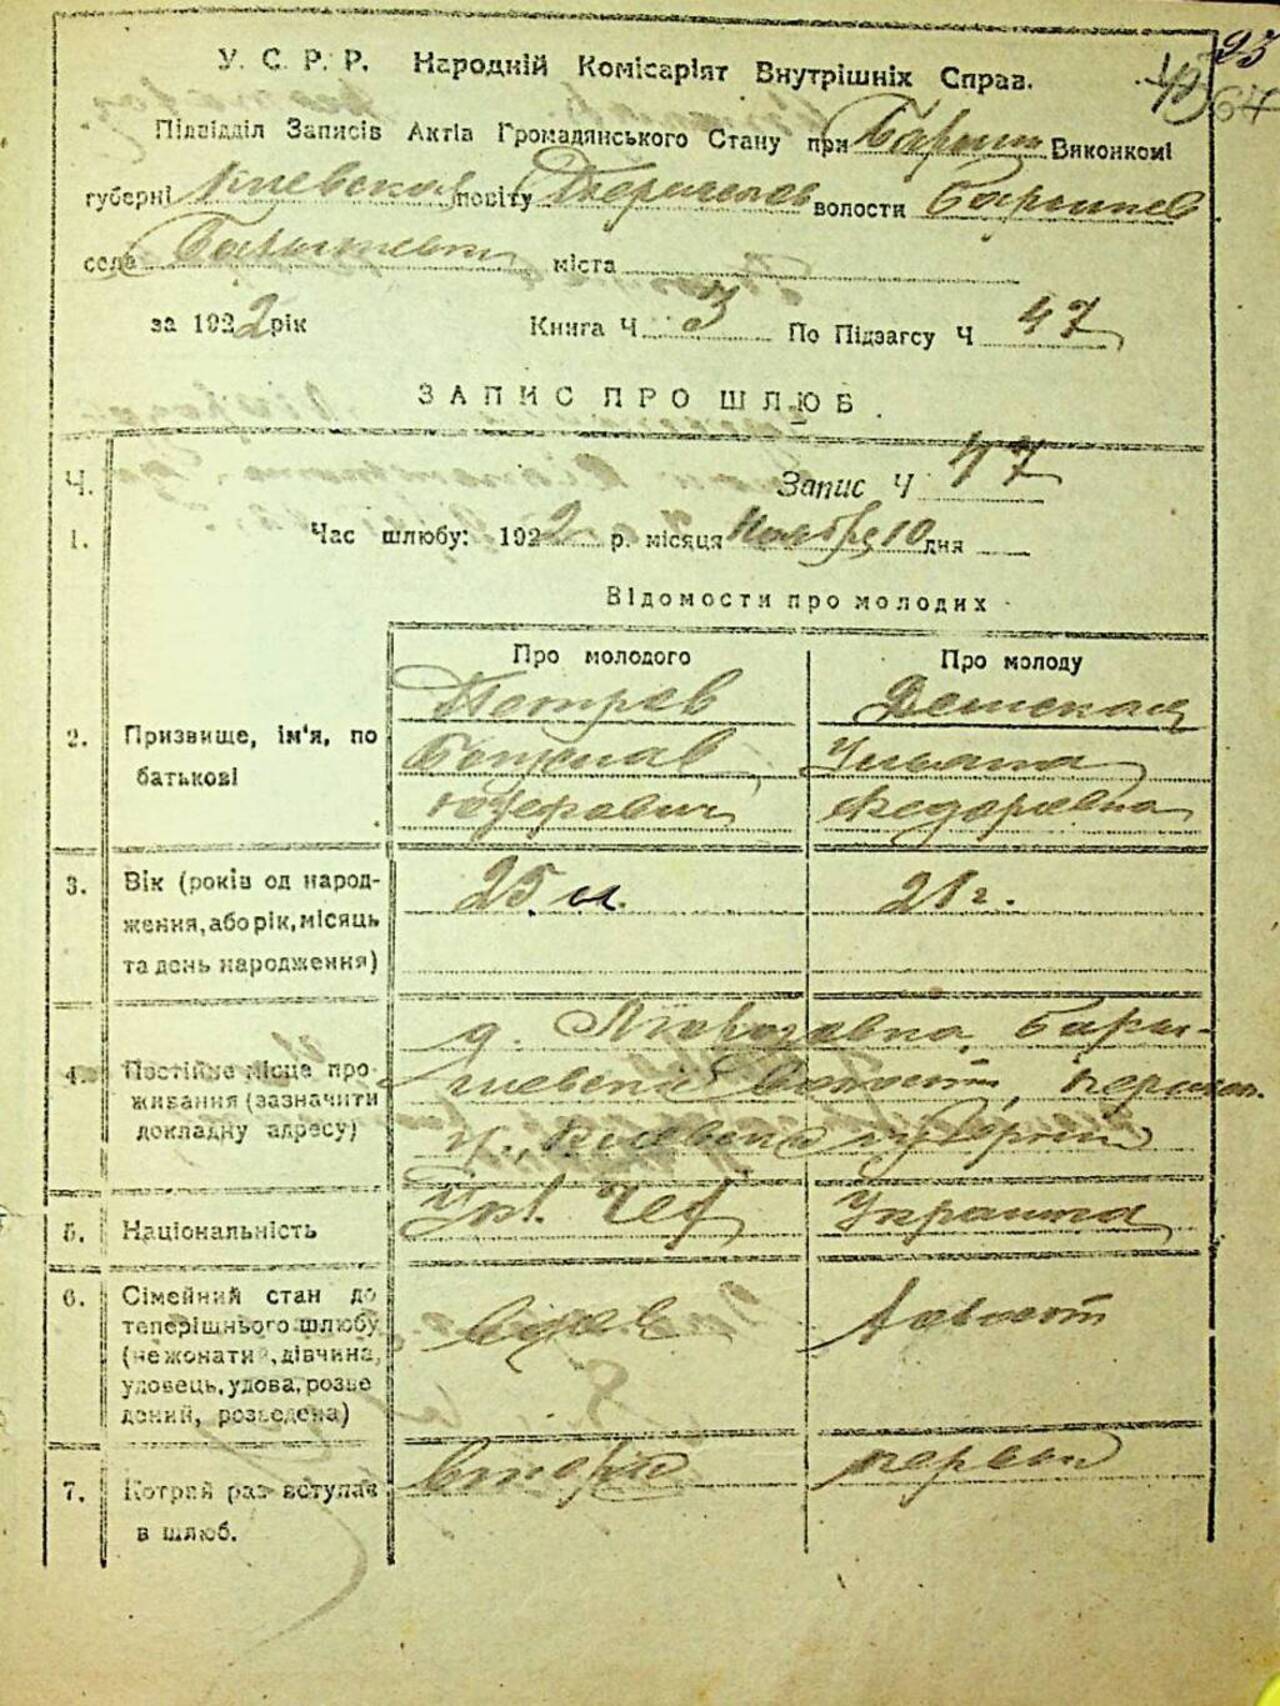 23
40 67
У. С. Р. Р. Народній Комісаріят Внутрішніх Справ.
Підвідділ Записів Актів Громадянського Стану при Бариш Виконкомі
губерні Киевской повіту Переяслав волости Баришев
села Баришевки міста
за 1922 рік Книга Ч 3 По Підзагсу Ч 47
ЗАПИС ПРО ШЛЮБ.
Ч. Запис Ч 47
1. Час шлюбу: 1922 р. місяця Ноября 10 дня
Відомости про молодих
Про молодого Про молоду
Петров
2. Призвище, ім'я, по батькові
Ульяна
Федоровна
3. Вік (років од народ-
ження, або рік, місяць
та день народження)
25 л. 21 г.
4. Постійне місце про-
живання (зазначити
докладну адресу)
д. Бары-
шевской волости,
Киевской губернии
5. Національність
Чех Украинка
6. Сімейний стан до
теперішнього шлюбу
(нежонатий, дівчина,
удовець, удова, розве
дений, розведена)
вдов
7. Котрий раз вступав
в шлюб.
вторый первый